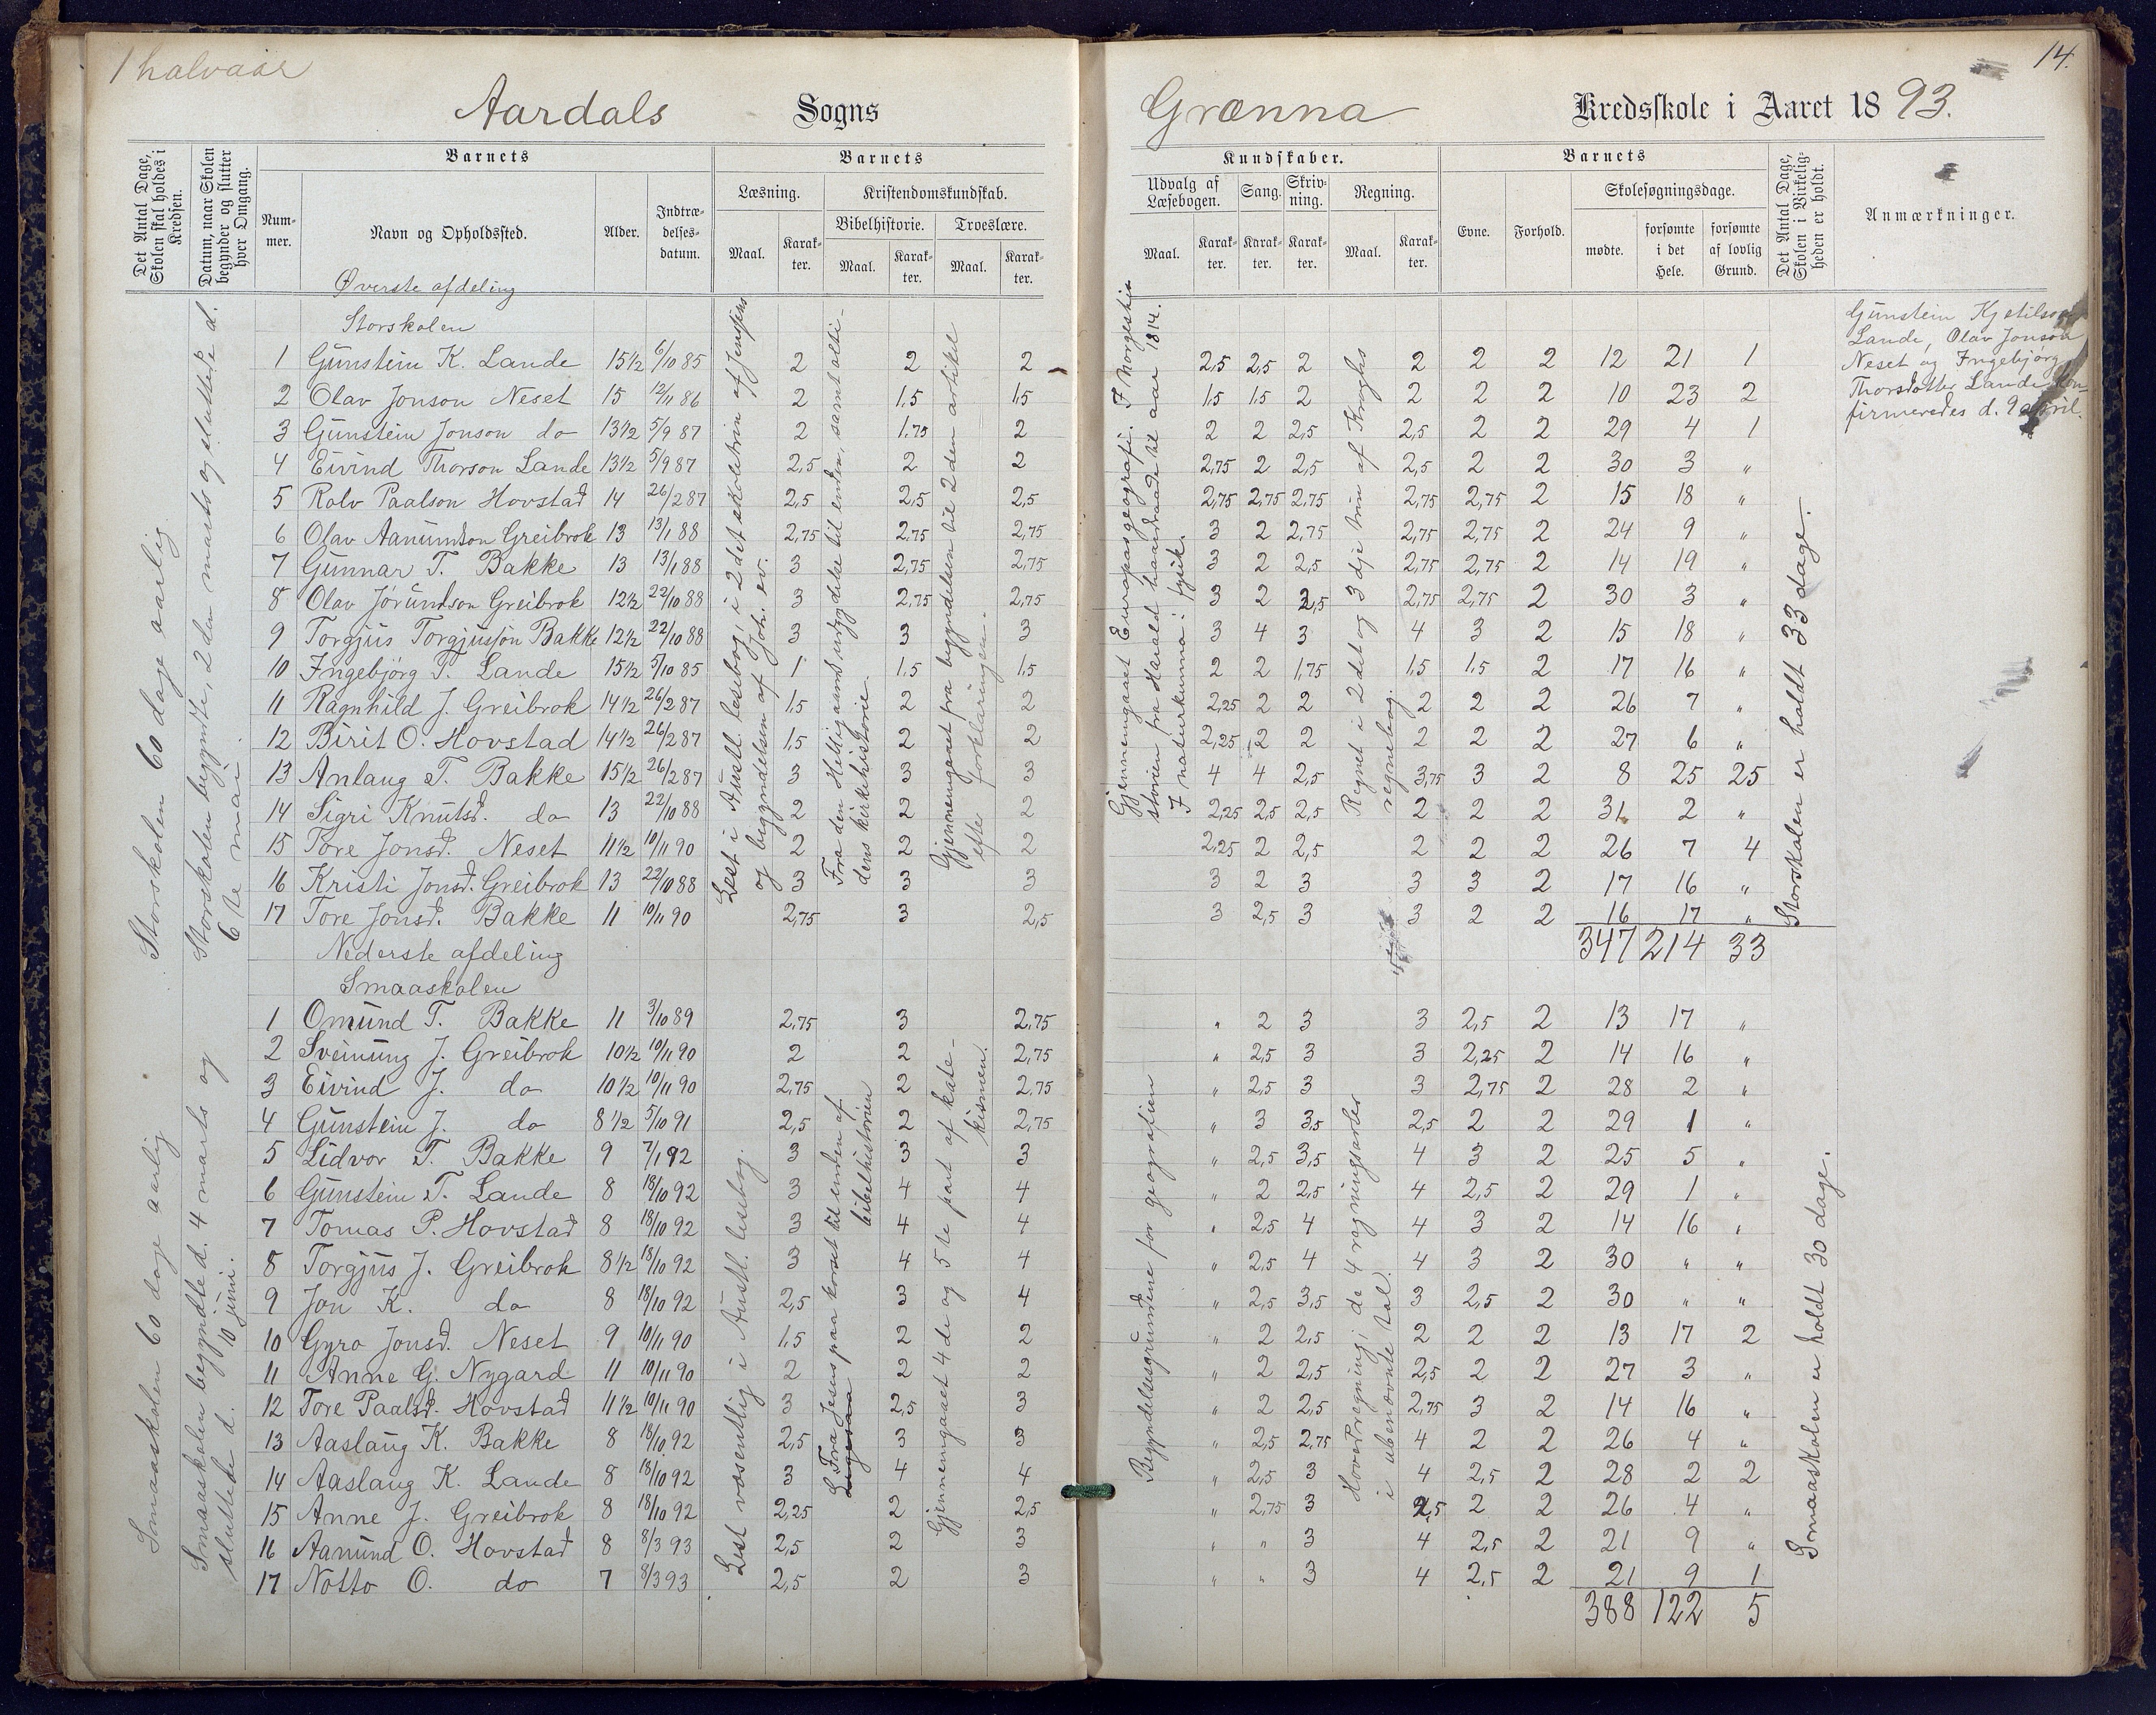 1 halvaar
Aardals Sogns
Det Antal Dage, Skolen skal holdes i Kredsen.
Datum, naar Skolen begynder og slutter hver Omgang.
Barnets
Nummer.
Navn og Opholdssted.
Alder.
Indtrædelsesdatum.
Barnets
Læsning.
Kristendomskundskab.
Bibelhistorie. Troeslære.
Maal. Karakter. Maal. Karakter. Maal. Karakter.
Storskolen 60 dage aarlig
Storskolen begynte, 2den marts og sluttede d. 6te mai.
Øverste afdeling
Storskolen
1 Gunstein K. Lande 15½ 6/10 85 2 2 2
2 Olav Jonson Neset 15 12/11 86 2 1,5 1,5
3 Gunstein Jonson do 13½ 5/9 87 2 1,75 2
4 Eivind Thorson Lande 13½ 5/9 87 2,5 2 2
5 Rolv Paalson Hovstad 14 26/2 87 2,5 2,5 2,5
6 Olav Aanundson Greibrok 13 13/1 88 2,75 2,75 2,75
7 Gunnar T. Bakke 13 13/1 88 3 2,75 2,75
8 Olav Jørundson Greibrok 12½ 22/10 88 3 2,75 2,75
9 Torgjus Torgjusson Bakke 12½ 22/10 88 3 3 3
10 Ingebjörg T. Lande 15½ 5/10 85 1 1,5 1,5
11 Ragnhild J. Greibrok 14½ 26/2 87 1,5 2 2
12 Birit O. Hovstad 14½ 26/2 87 1,5 2 2
13 Anlaug T. Bakke 15½ 26/2 87 3 3 3
14 Sigri Knutsd. do 13 22/10 88 2 2 2
15 Tore Jonsd. Neset 11½ 10/11 90 2 2 2
16 Kristi Jonsd. Greibrok 13 22/10 88 3 3 3
17 Tore Jonsd. Bakke 11 10/11 90 2,75 3 2,5
Lest i Austl. lesebog, i 2det skoletrin af Jensens
og begyndelsen af Joh. ev.
Fra den Hellig aands udgydelse til enden, samt olti-
dens kirkehistorie.
Gjennemgaaet fra begyndelsen til 2den artikel
efter forklaringen.
Nederste afdeling
Smaaskolen
Smaaskolen 60 dage aarlig
Smaaskolen begyndte d. 4 marts og
sluttede d. 10 juni.
1 Omund T. Bakke 11 3/10 89 2,75 3 2,75
2 Sveinung J. Greibrok 10½ 10/11 90 2 2 2,75
3 Eivind J. do 10½ 10/11 90 2,75 2 2,75
4 Gunstein J. do 8½ 5/10 91 2,5 2 2,75
5 Lidvor T. Bakke 9 7/1 92 3 3 3
6 Gunstein T. Lande 8 18/10 92 3 4 4
7 Tomas P. Hovstad 8 18/10 92 3 4 4
8 Torgjus J. Greibrok 8½ 18/10 92 3 4 4
9 Jon K. do 8 18/10 92 2,5 3 4
10 Gyro Jonsd. Neset 9 10/11 90 1,5 2 2
11 Anne G. Nygard 11 10/11 90 2 2 2
12 Tore Paalsd. Hovstad 11½ 10/11 90 3 2,5 3
13 Aaslaug K. Bakke 8 18/10 92 2,5 3 3
14 Aaslaug K. Lande 8 18/10 92 3 4 4
15 Anne J. Greibrok 8 18/10 92 2,25 2 2,5
16 Aanund O. Hovstad 8 8/3 93 2,5 2 3
17 Notto O. do 7 8/3 93 2,5 2 3
Lest væsentlig i Austl. lesebog.
Fra Jesus paa korset til enden af
bibelhistorien
Gjennemgaaet 4de og 5te part af kate-
kismen.
14.
Grænna Kredsskole i Aaret 1893.
Kundskaber.
Udvalg af Læsebogen. Sang. Skrivning. Regning.
Maal. Karakter. Karakter. Karakter. Maal. Karakter.
Barnets
Evne. Forhold.
Skolesøgningsdage.
mødte. forsømte i det Hele. forsømte af lovlig Grund.
Det Antal Dage, Skolen i Virkeligheden er holdt.
Anmærkninger.
Gunstein Kjetilson
Lande, Olav Jonson
Neset og Ingebjörg
Thorsdotter Lande kon-
firmeredes d. 9 april.
2,5 2,5 2 2 2 2 12 21 1
1,5 1,5 2 2 2 2 10 23 2
2 2 2,5 2,5 2 2 29 4 1
2,75 2 2,5 2,5 2 2 30 3 "
2,75 2,75 2,75 2,75 2,75 2 15 18 "
3 2 2,75 2,75 2,75 2 24 9 "
3 2 2,5 2,75 2,75 2 14 19 "
3 2 2,5 2,75 2,75 2 30 3 "
3 4 3 4 3 2 15 18 "
2 2 1,75 1,5 1,5 2 17 16 "
2,25 2 2 2 2 2 26 7 "
2,25 2 2 2 2 2 27 6 "
4 4 2,5 3,75 3 2 8 25 25
2,25 2,5 2,5 2 2 2 31 2 "
2,25 2 2,5 2 2 2 26 7 4
3 2 3 3 3 2 17 16 "
3 2,5 3 3 2 2 16 17 "
347 214 33
Gjennemgaaet Europas geografi. I Norgeshi-
storien fra Harald haardraade til aar 1814.
I naturkunna: fysik.
Regnet i 2det og 3dje trin af Kroghs
regnebog.
Storskolen er holdt 33 dage.
" 2 3 3 2,5 2 13 17 "
" 2,5 3 3 2,25 2 14 16 "
" 2,5 3 3 2,75 2 28 2 "
" 3 3,5 2,5 2 2 29 1 "
" 2,5 3,5 4 3 2 25 5 "
" 2 2,5 4 2,5 2 29 1 "
" 2,5 4 4 3 2 14 16 "
" 2,5 4 4 3 2 30 " "
" 2,5 3,5 3 2,5 2 30 " "
" 2 2,5 2 2 2 13 17 2
" 2 2,5 2,5 2 2 27 3 "
" 2 2,5 2,75 3 2 14 16 "
" 2,5 2,75 4 2 2 26 4 "
" 2,5 3 4 2,5 2 28 2 2
" 2,75 3 2,5 2 2 26 4 "
" " 3 4 2,5 2 21 9 "
" " 3 4 2,5 2 21 9 1
388 122 5
Begyndelsesgrundene for geografien
Hovedregning; de 4 regningsarter
i ubenævnte tal.
Smaaskolen er holdt 30 dage.